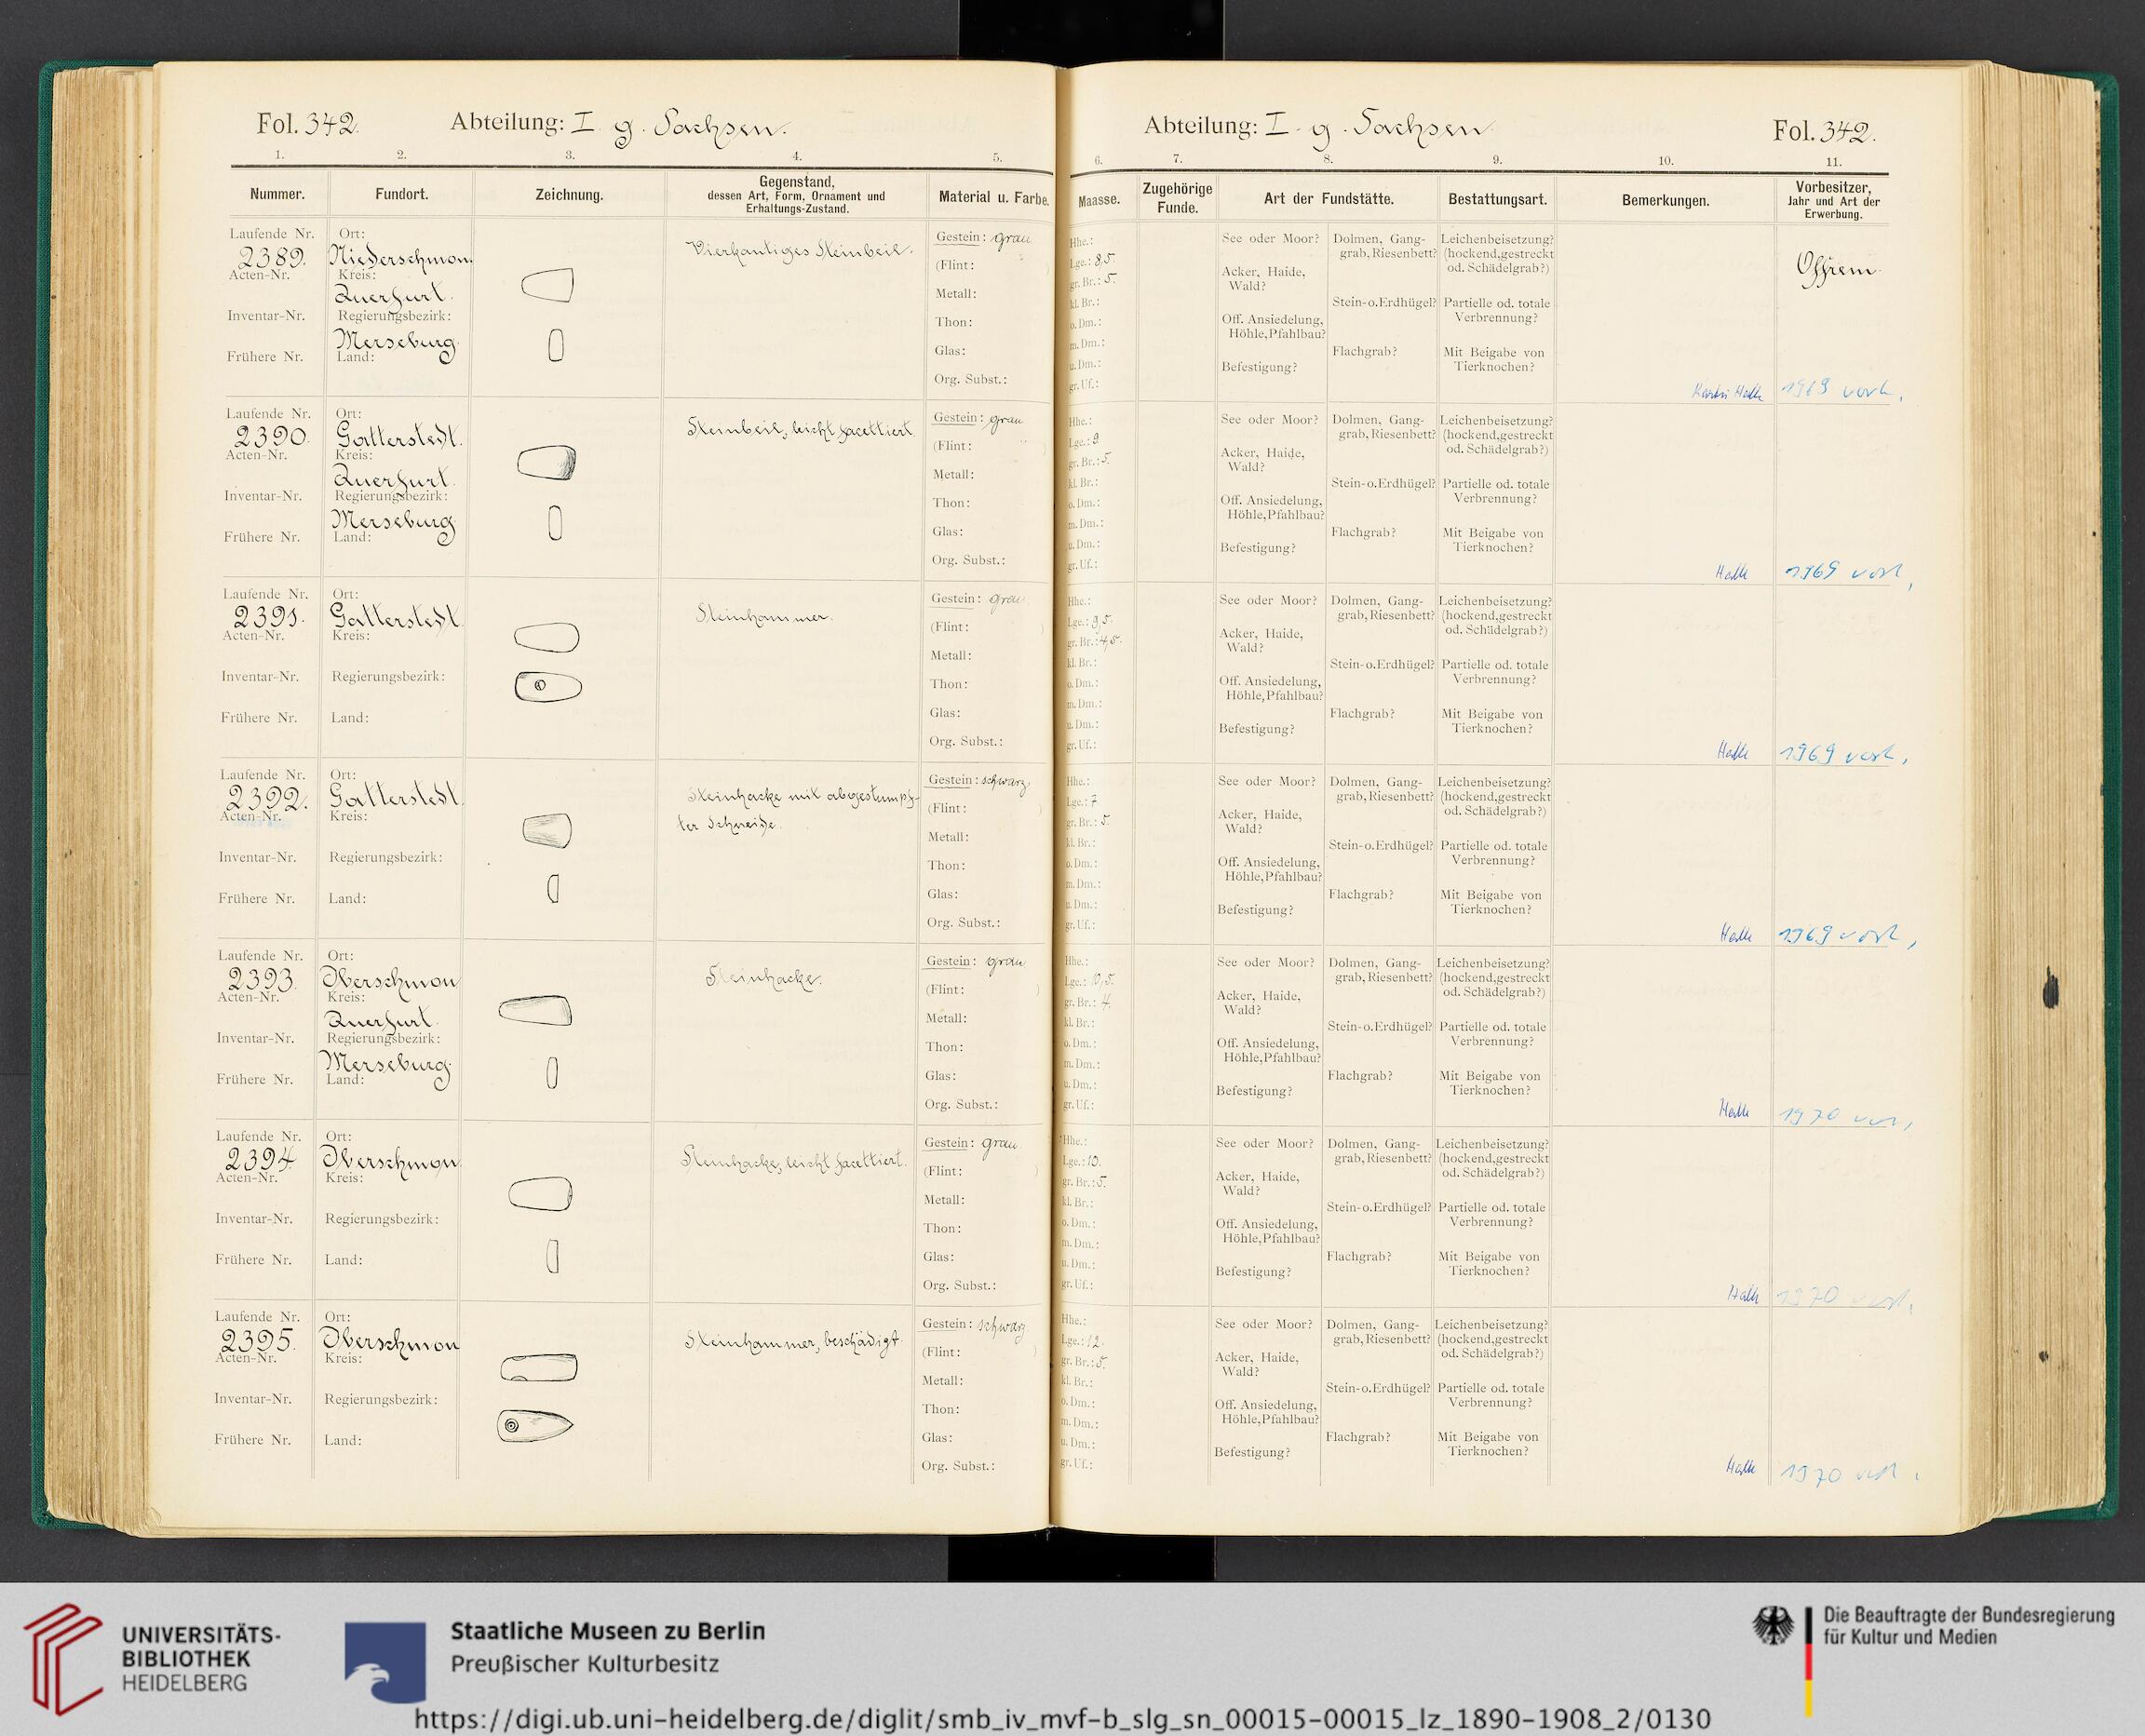 Fol. 342. Abteilung: I. g. Sachsen.
1. 2. 3. 4. 5.
Nummer. Fundort. Zeichnung. Gegenstand, dessen Art, Form, Ornament und Erhaltungs-Zustand. Material u. Farbe.
Laufende Nr. Ort: Gestein: grau
2389. Niederschmon. Vierkantiges Steinbeil.
Acten-Nr. Kreis: (Flint: )
Querfurt. Metall:
Inventar-Nr. Regierungsbezirk: Thon:
Merseburg. Glas:
Frühere Nr. Land: Org. Subst.:
Laufende Nr. Ort: Gestein: grau
2390. Gatterstedt. Steinbeil, leicht facettiert.
Acten-Nr. Kreis: (Flint: )
Querfurt. Metall:
Inventar-Nr. Regierungsbezirk: Thon:
Merseburg. Glas:
Frühere Nr. Land: Org. Subst.:
Laufende Nr. Ort: Gestein: grau
2391. Gatterstedt. Steinhammer.
Acten-Nr. Kreis: (Flint: )
Metall:
Inventar-Nr. Regierungsbezirk: Thon:
Glas:
Frühere Nr. Land: Org. Subst.:
Laufende Nr. Ort: Gestein: schwarz.
2392. Gatterstedt. Steinhacke mit abgestumpf-
ter Schneide.
Acten-Nr. Kreis: (Flint: )
Metall:
Inventar-Nr. Regierungsbezirk: Thon:
Glas:
Frühere Nr. Land: Org. Subst.:
Laufende Nr. Ort: Gestein: grau
2393. Oberschmon Steinhacke.
Acten-Nr. Kreis: (Flint: )
Querfurt. Metall:
Inventar-Nr. Regierungsbezirk: Thon:
Merseburg. Glas:
Frühere Nr. Land: Org. Subst.:
Laufende Nr. Ort: Gestein: grau
2394. Oberschmon. Steinhacke, leicht facettiert.
Acten-Nr. Kreis: (Flint: )
Metall:
Inventar-Nr. Regierungsbezirk: Thon:
Glas:
Frühere Nr. Land: Org. Subst.:
Laufende Nr. Ort: Gestein: schwarz
2395. Oberschmon Steinhammer, beschädigt.
Acten-Nr. Kreis: (Flint: )
Metall:
Inventar-Nr. Regierungsbezirk: Thon:
Glas:
Frühere Nr. Land: Org. Subst.:
Abteilung: I. g. Sachsen. Fol. 342.
6. 7. 8. 9. 10. 11.
Maasse. Zugehörige Funde. Art der Fundstätte. Bestattungsart. Bemerkungen. Vorbesitzer, Jahr und Art der Erwerbung.
Hhe.: See oder Moor? Dolmen, Gang- Leichenbeisetzung?
Lge.: 8,5. grab, Riesenbett? (hockend, gestreckt
gr. Br.: 5. Acker, Haide, Wald? od. Schädelgrab?)
kl. Br.: Stein- o. Erdhügel? Partielle od. totale
o. Dm.: Off. Ansiedelung, Verbrennung?
m. Dm.: Höhle, Pfahlbau? Flachgrab? Mit Beigabe von
u. Dm.: Befestigung? Tierknochen?
gr. Uf.: 1969 vorh.
Hhe.: See oder Moor? Dolmen, Gang- Leichenbeisetzung?
Lge.: 9 grab, Riesenbett? (hockend, gestreckt
gr. Br.: 5. Acker, Haide, Wald? od. Schädelgrab?)
kl. Br.: Stein- o. Erdhügel? Partielle od. totale
o. Dm.: Off. Ansiedelung, Verbrennung?
m. Dm.: Höhle, Pfahlbau? Flachgrab? Mit Beigabe von
u. Dm.: Befestigung? Tierknochen?
gr. Uf.: Halle 1969 vorh.
Hhe.: See oder Moor? Dolmen, Gang- Leichenbeisetzung?
Lge.: 9,5. grab, Riesenbett? (hockend, gestreckt
gr. Br.: 4,5. Acker, Haide, Wald? od. Schädelgrab?)
kl. Br.: Stein- o. Erdhügel? Partielle od. totale
o. Dm.: Off. Ansiedelung, Verbrennung?
m. Dm.: Höhle, Pfahlbau? Flachgrab? Mit Beigabe von
u. Dm.: Befestigung? Tierknochen?
gr. Uf.: Halle 1969 vorh.
Hhe.: See oder Moor? Dolmen, Gang- Leichenbeisetzung?
Lge.: 7 grab, Riesenbett? (hockend, gestreckt
gr. Br.: 5. Acker, Haide, Wald? od. Schädelgrab?)
kl. Br.: Stein- o. Erdhügel? Partielle od. totale
o. Dm.: Off. Ansiedelung, Verbrennung?
m. Dm.: Höhle, Pfahlbau? Flachgrab? Mit Beigabe von
u. Dm.: Befestigung? Tierknochen?
gr. Uf.: Halle 1969 vorh.
Hhe.: See oder Moor? Dolmen, Gang- Leichenbeisetzung?
Lge.: 10,5. grab, Riesenbett? (hockend, gestreckt
gr. Br.: 4. Acker, Haide, Wald? od. Schädelgrab?)
kl. Br.: Stein- o. Erdhügel? Partielle od. totale
o. Dm.: Off. Ansiedelung, Verbrennung?
m. Dm.: Höhle, Pfahlbau? Flachgrab? Mit Beigabe von
u. Dm.: Befestigung? Tierknochen?
gr. Uf.: Halle 1970
Hhe.: See oder Moor? Dolmen, Gang- Leichenbeisetzung?
Lge.: 10. grab, Riesenbett? (hockend, gestreckt
gr. Br.: 5. Acker, Haide, Wald? od. Schädelgrab?)
kl. Br.: Stein- o. Erdhügel? Partielle od. totale
o. Dm.: Off. Ansiedelung, Verbrennung?
m. Dm.: Höhle, Pfahlbau? Flachgrab? Mit Beigabe von
u. Dm.: Befestigung? Tierknochen?
gr. Uf.: Halle 1970 vorh.
Hhe.: See oder Moor? Dolmen, Gang- Leichenbeisetzung?
Lge.: 12. grab, Riesenbett? (hockend, gestreckt
gr. Br.: 5. Acker, Haide, Wald? od. Schädelgrab?)
kl. Br.: Stein- o. Erdhügel? Partielle od. totale
o. Dm.: Off. Ansiedelung, Verbrennung?
m. Dm.: Höhle, Pfahlbau? Flachgrab? Mit Beigabe von
u. Dm.: Befestigung? Tierknochen?
gr. Uf.: Halle 1970 vorh.
UNIVERSITÄTS-
BIBLIOTHEK
HEIDELBERG
Staatliche Museen zu Berlin
Preußischer Kulturbesitz
Die Beauftragte der Bundesregierung
für Kultur und Medien
https://digi.ub.uni-heidelberg.de/diglit/smb_iv_mvf-b_slg_sn_00015-00015_lz_1890-1908_2/0130